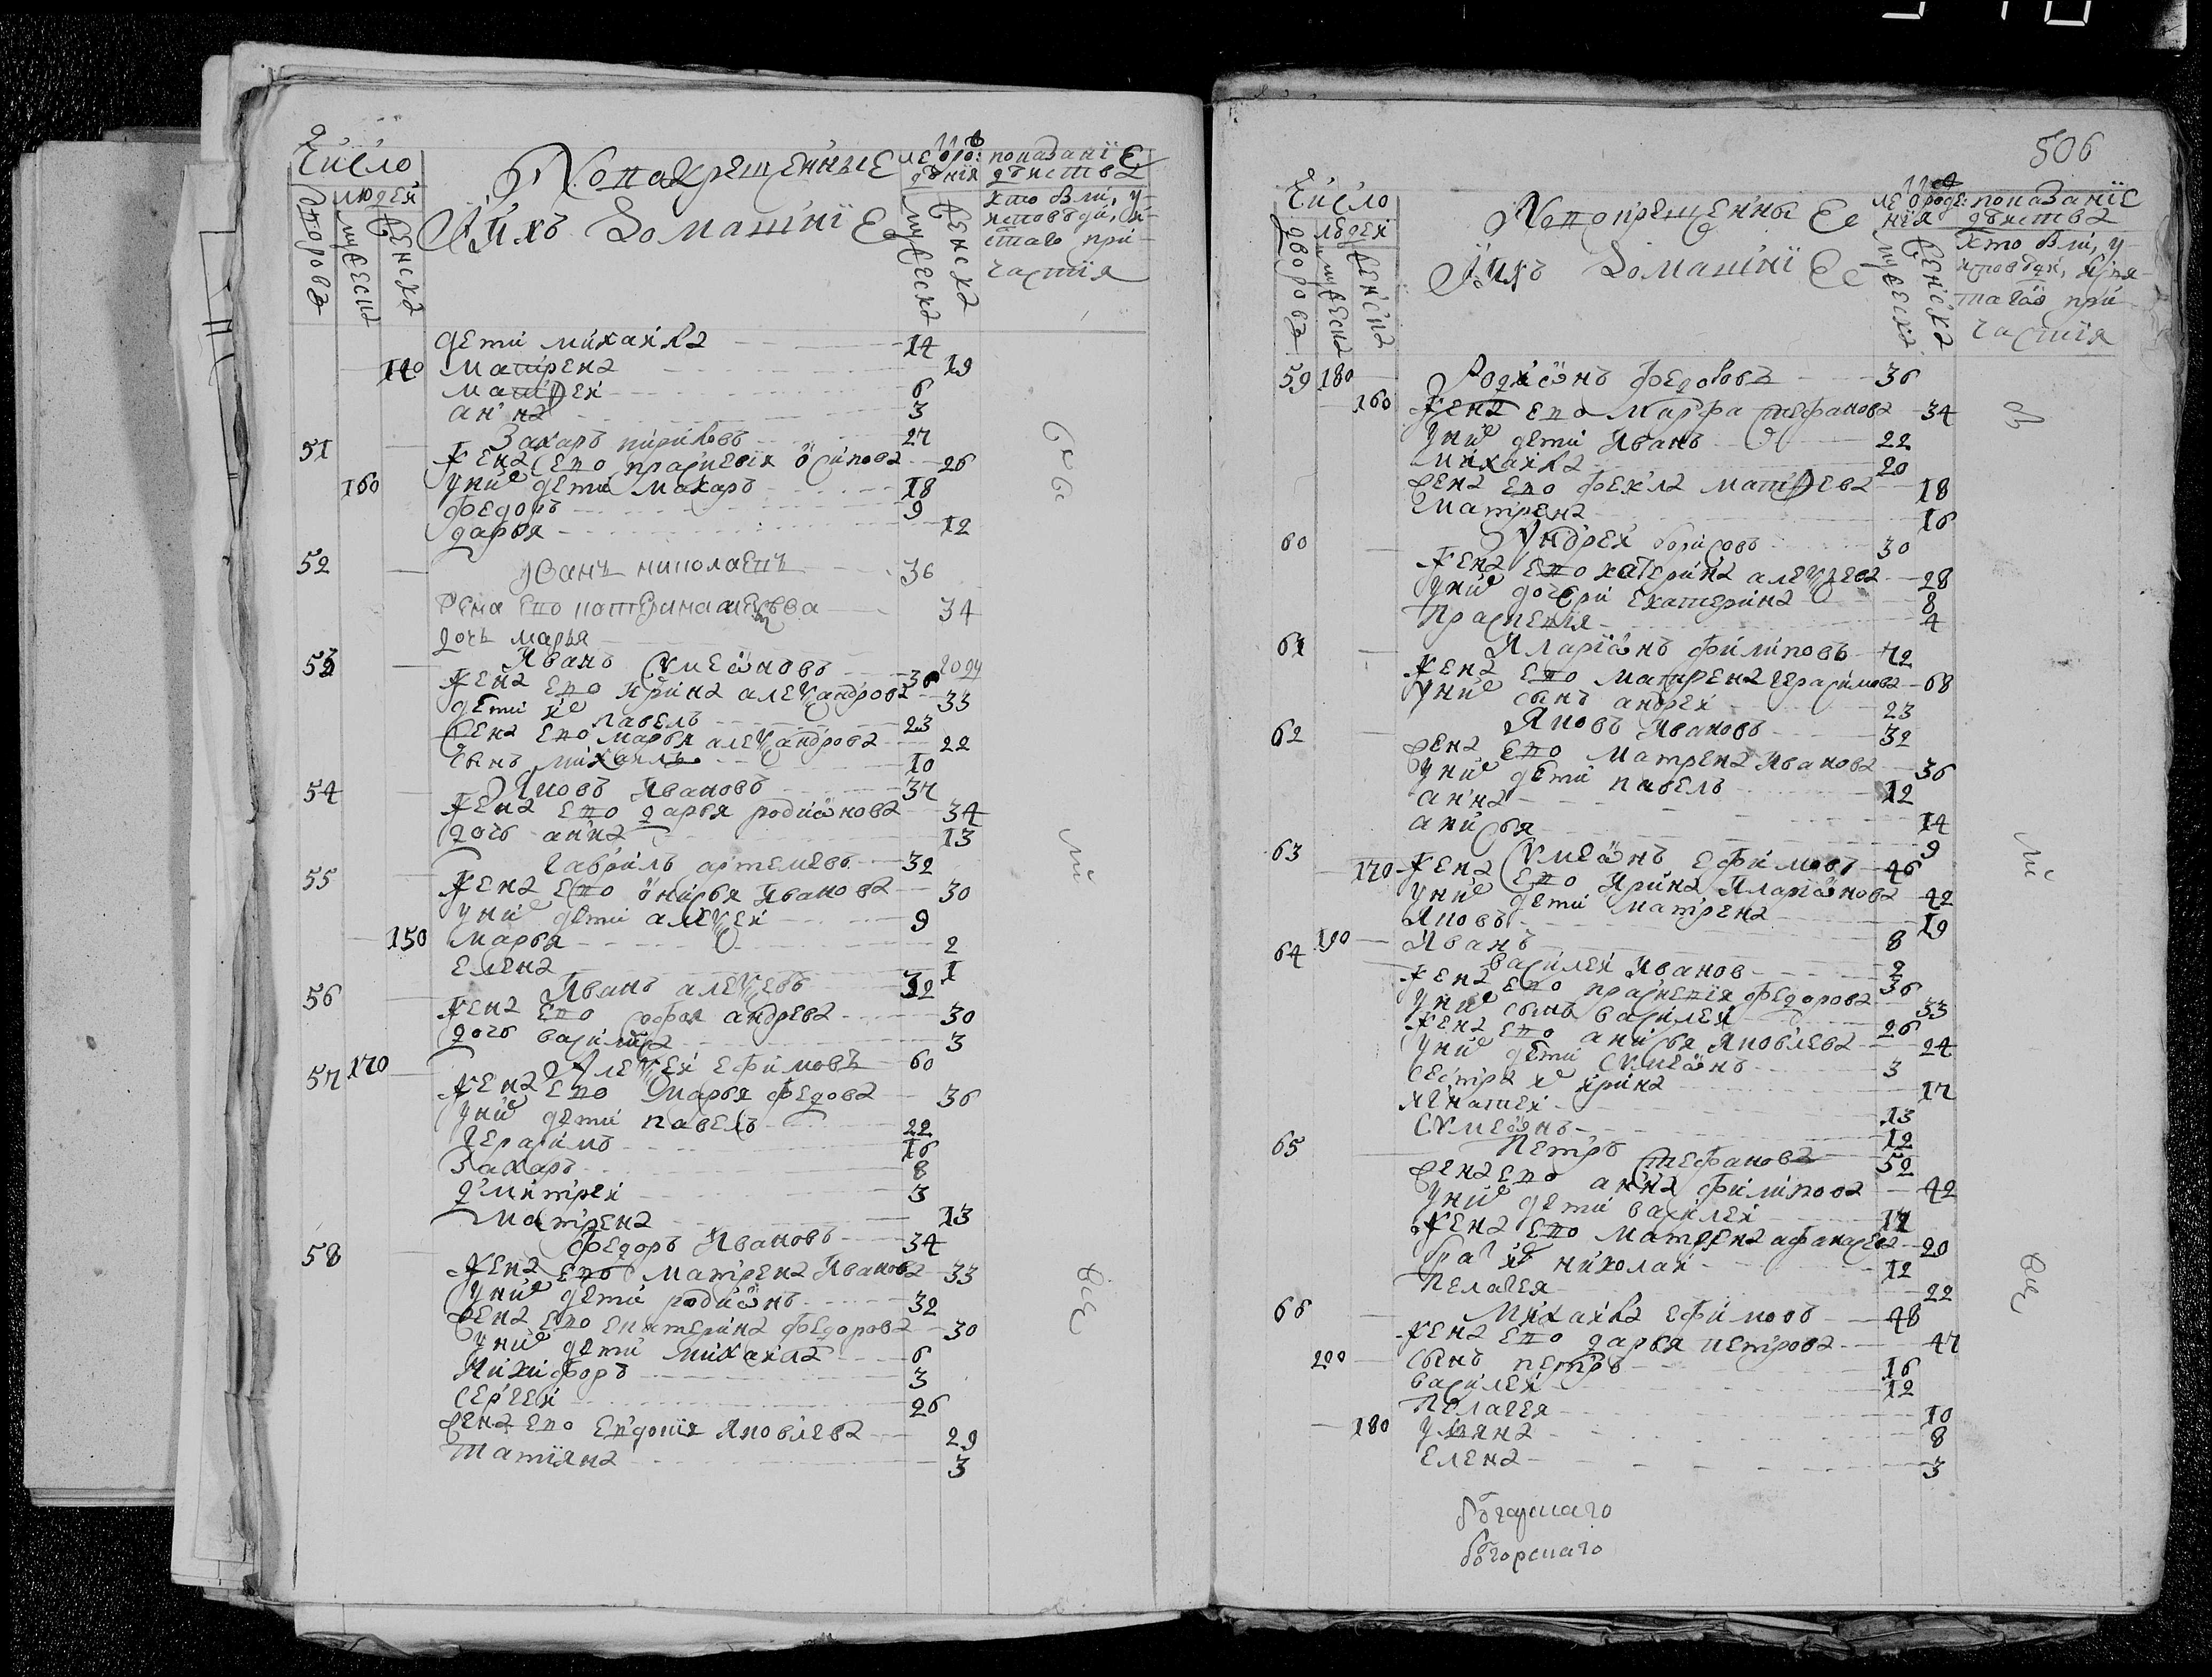 Число
людей
дворовъ
мужеска
женска
Новокрещенные
И ихъ домашнїе
показанїе
дѣиства
кто былъ у
исповѣди, и с.
таго при-
частїя
дети михаила 14
140 матрена 19
матфеи 6
анна 3
51 Захаръ кириловъ 27
жена ево праскевїя осипова 26
160 у нихъ дети макаръ 18
федоръ 9
дарья 12
52 Иванъ николаевъ 36
жена ево катерина 34
дочь марья
53 Иванъ Сумеоновъ 36
жена ево ирина александрова 33
дети их павелъ 23
жена ево марья александрова 22
сынъ михаилъ 10
54 Яковъ Ивановъ 37
жена ево дарья родионова 34
дочь анна 13
55 Гаврилъ артемевъ 32
жена ево онисья Иванова 30
у нихъ дети алексеи 9
150 марья 2
елена 1
56 Иванъ алексеевъ 32
жена ево софья андрева 30
дочь василиса 3
57 170 Алексеи ефимовъ 60
жена ево марья федова 36
у нихъ дети павелъ 22
Герасимъ 16
Захаръ 8
дмитреи 3
матрена 13
58 Федоръ Ивановъ 34
жена ево матрена Иванова 33
у нихъ дети родионъ 32
жена ево екатерина федорова 30
у нихъ дети михаила 6
Никифоръ 3
Сергеи 26
жена ево евдокия Яковлева 29
Татїяна 3
506
Число
людеи
дворовъ
мужеска
женска
Новокрещенные
И ихъ домашнїе
показанїе
дѣиства
кто былъ у
исповѣди, и свя-
таго при
частия
59 180 Родионъ федовъ 36
160 жена ево марфа стефанова 34
у нихъ дети Иванъ 22
михаила 20
жена ево фекла матфева 18
матрена 16
60 Андреи борисовъ 30
жена ево катерина алексеева 28
у нихъ дочери екатерина 8
праскевия 4
61 Иларионъ филиповъ 72
жена ево матрена герасимова 68
у нихъ сынъ андреи 23
62 Яковъ Ивановъ 32
жена ево матрена Иванова 36
у нихъ дети павелъ 12
анна 14
анисья 9
63 Сумеонъ ефимовъ 46
170 жена ево Ирина Иларионова 42
у нихъ дети матрена 19
Яковъ 8
190 Иванъ 2
64 василеи Иванов 36
жена ево праскевия федорова 33
у нихъ сынъ василеи 26
жена ево анисья Яковлева 24
у нихъ дети Сумеонъ 3
сестра их ирина 17
игнатеи 13
Сумеонъ 12
65 Петръ Стефановъ 52
жена ево анна филипова 42
у нихъ дети василеи 17
жена ево матрена афанасева 20
брат их николаи 12
Пелагея 22
66 Михаила ефимовъ 48
жена ево дарья петрова 47
200 сынъ петръ 16
василеи 12
Пелагея 10
180 ульяна 8
елена 3
богорскаго